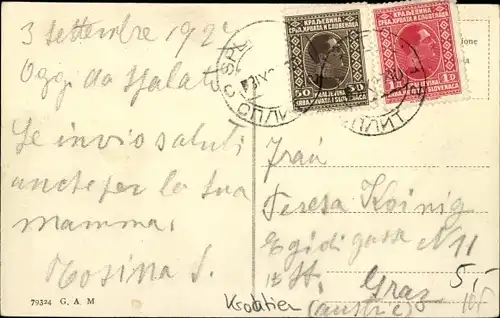 3 settembre 1927
Oggi da Spalato
Le invio saluti
anche per la sua
mamma,
Rosina S.
79324 G. A. M
КРАЉЕВИНА
СРБА, ХРВАТА И СЛОВЕНАЦА
50
КРАЉЕВИНА
СРБА, ХРВАТА И СЛОВЕНАЦА
1
СПЛИТ
Frau
Teresa Koinig
Egidigasse N 11
Graz
(Austria)
Kroatien
5,-